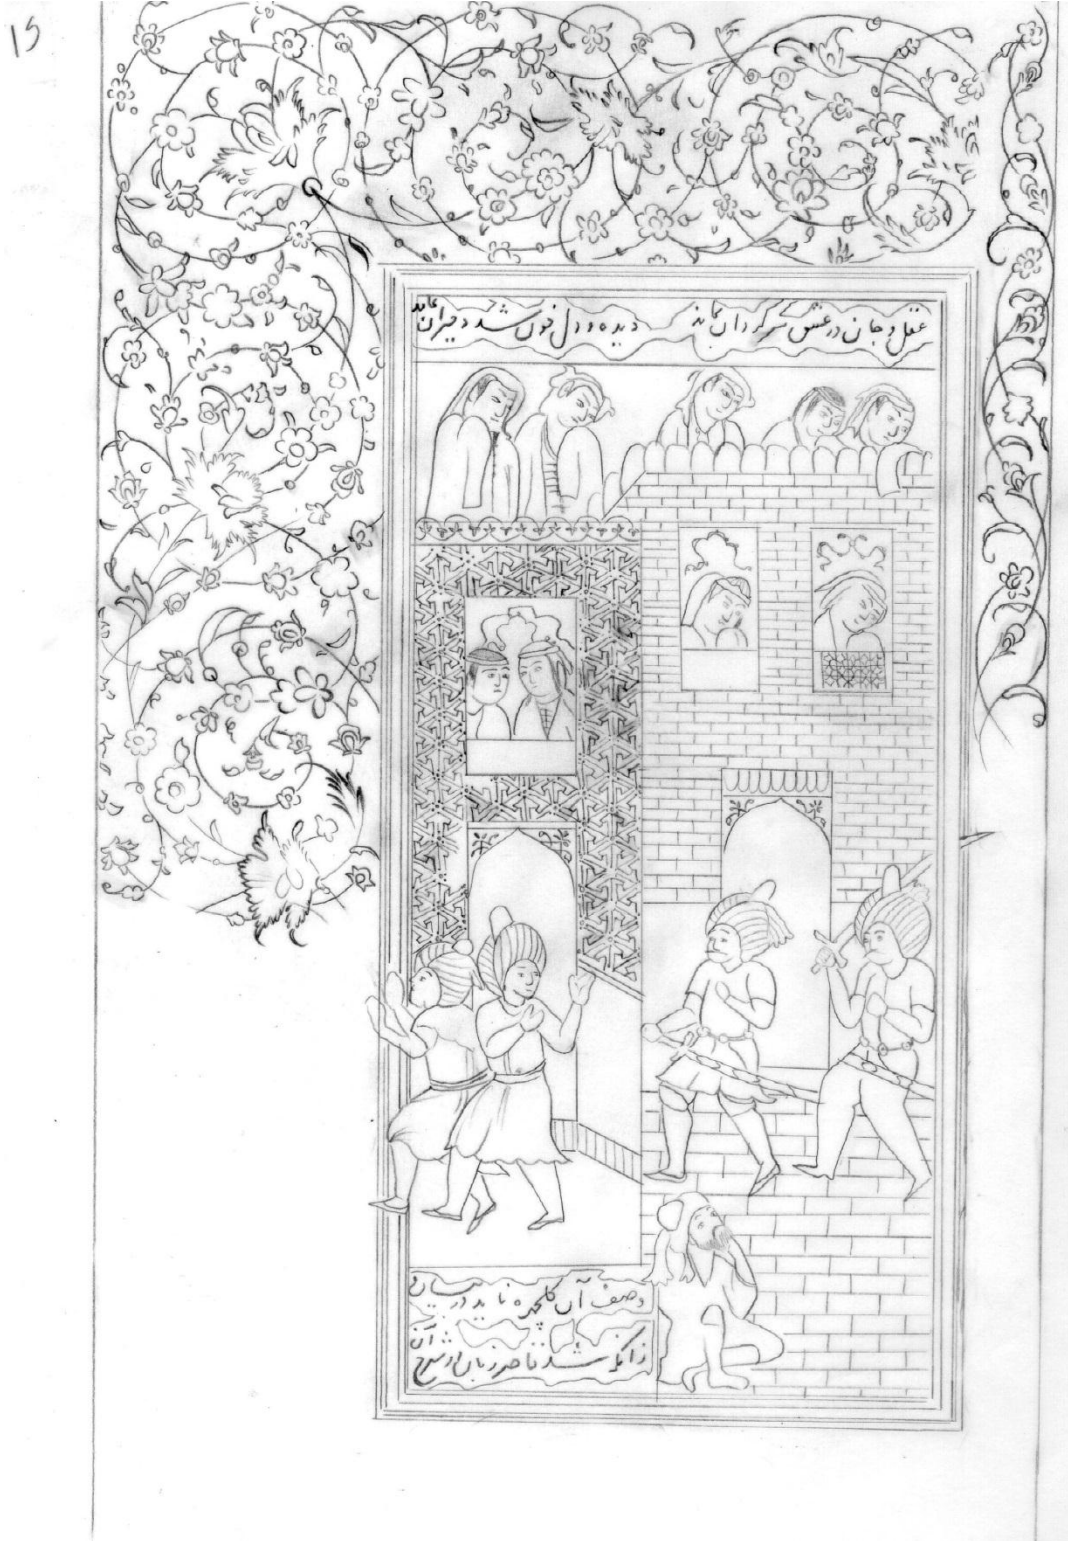 15
عقل و جان در عشق سرگردان بماند دیده و دل خون شد و حیران بماند
وصف آن گلچهره ناید در بیان
زانکه شد قاصر زبان از شرح آن